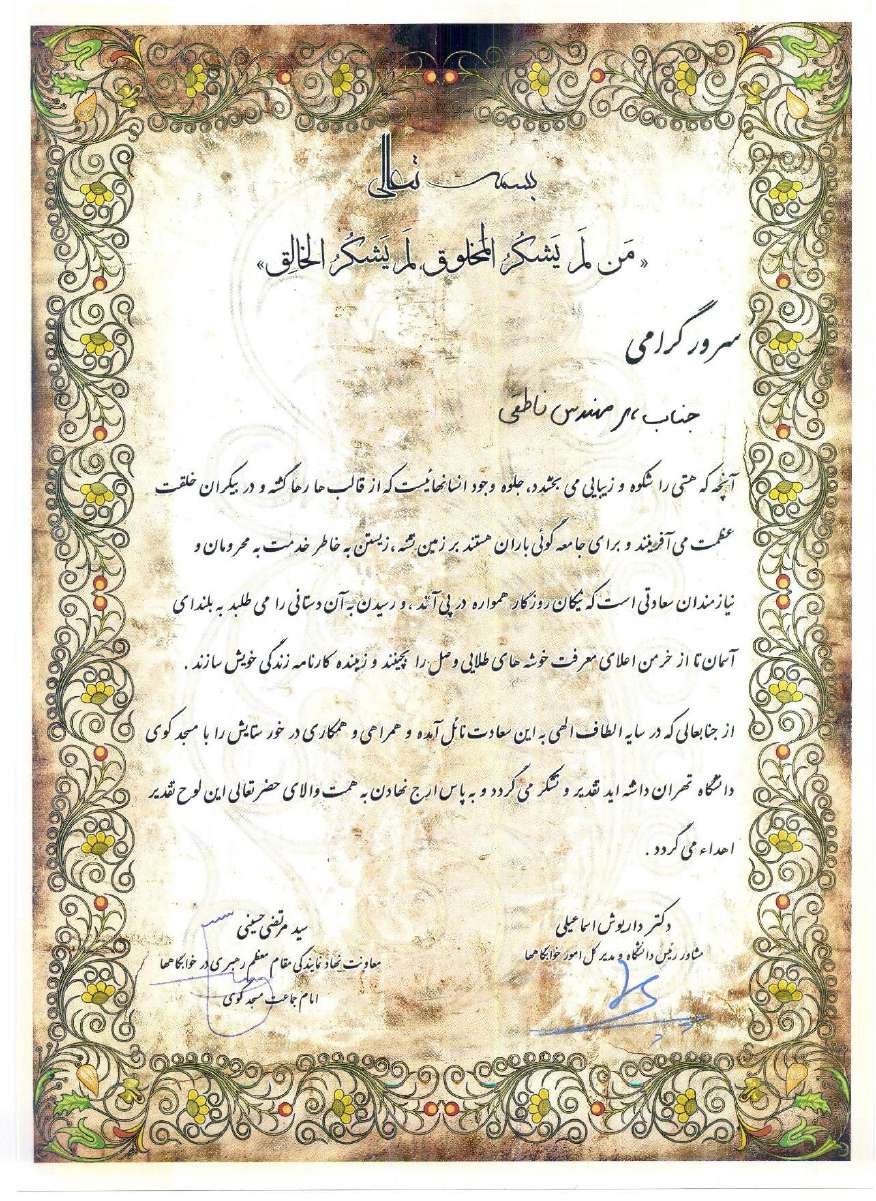 بسمه تعالی
«مَن لَم یَشکُرُ المَخلوق لَم یَشکُرُ الخالِق»
سرور گرامی
جناب مهندس ناطقی
آنچه که هستی را شکوه و زیبایی می بخشد، جلوه وجود انسانهائیست که از قالب ها رها گشته و در بیکران خلقت
عظمت می آفرینند و برای جامعه گوئی باران هستند بر زمین تشنه، زیستن به خاطر خدمت به محرومان و
نیازمندان سعادتی است که نیکان روزگار همواره در پی آنند، و رسیدن به آن دستانی را می طلبد به بلندای
آسمان تا از خرمن اعلای معرفت خوشه های طلایی وصل را بچینند و زیبنده کارنامه زندگی خویش سازند.
از جنابعالی که در سایه الطاف الهی به این سعادت نائل آمده و همراهی و همکاری در خور ستایش را با مسجد کوی
دانشگاه تهران داشته اید تقدیر و تشکر می گردد و به پاس ارج نهادن به همت والای حضرتعالی این لوح تقدیر
اهداء می گردد.
دکتر داریوش اسماعیلی
مشاور رئیس دانشگاه و مدیر کل امور خوابگاهها
سید مرتضی حسینی
معاونت نهاد نمایندگی مقام معظم رهبری در خوابگاهها
امام جماعت مسجد کوی